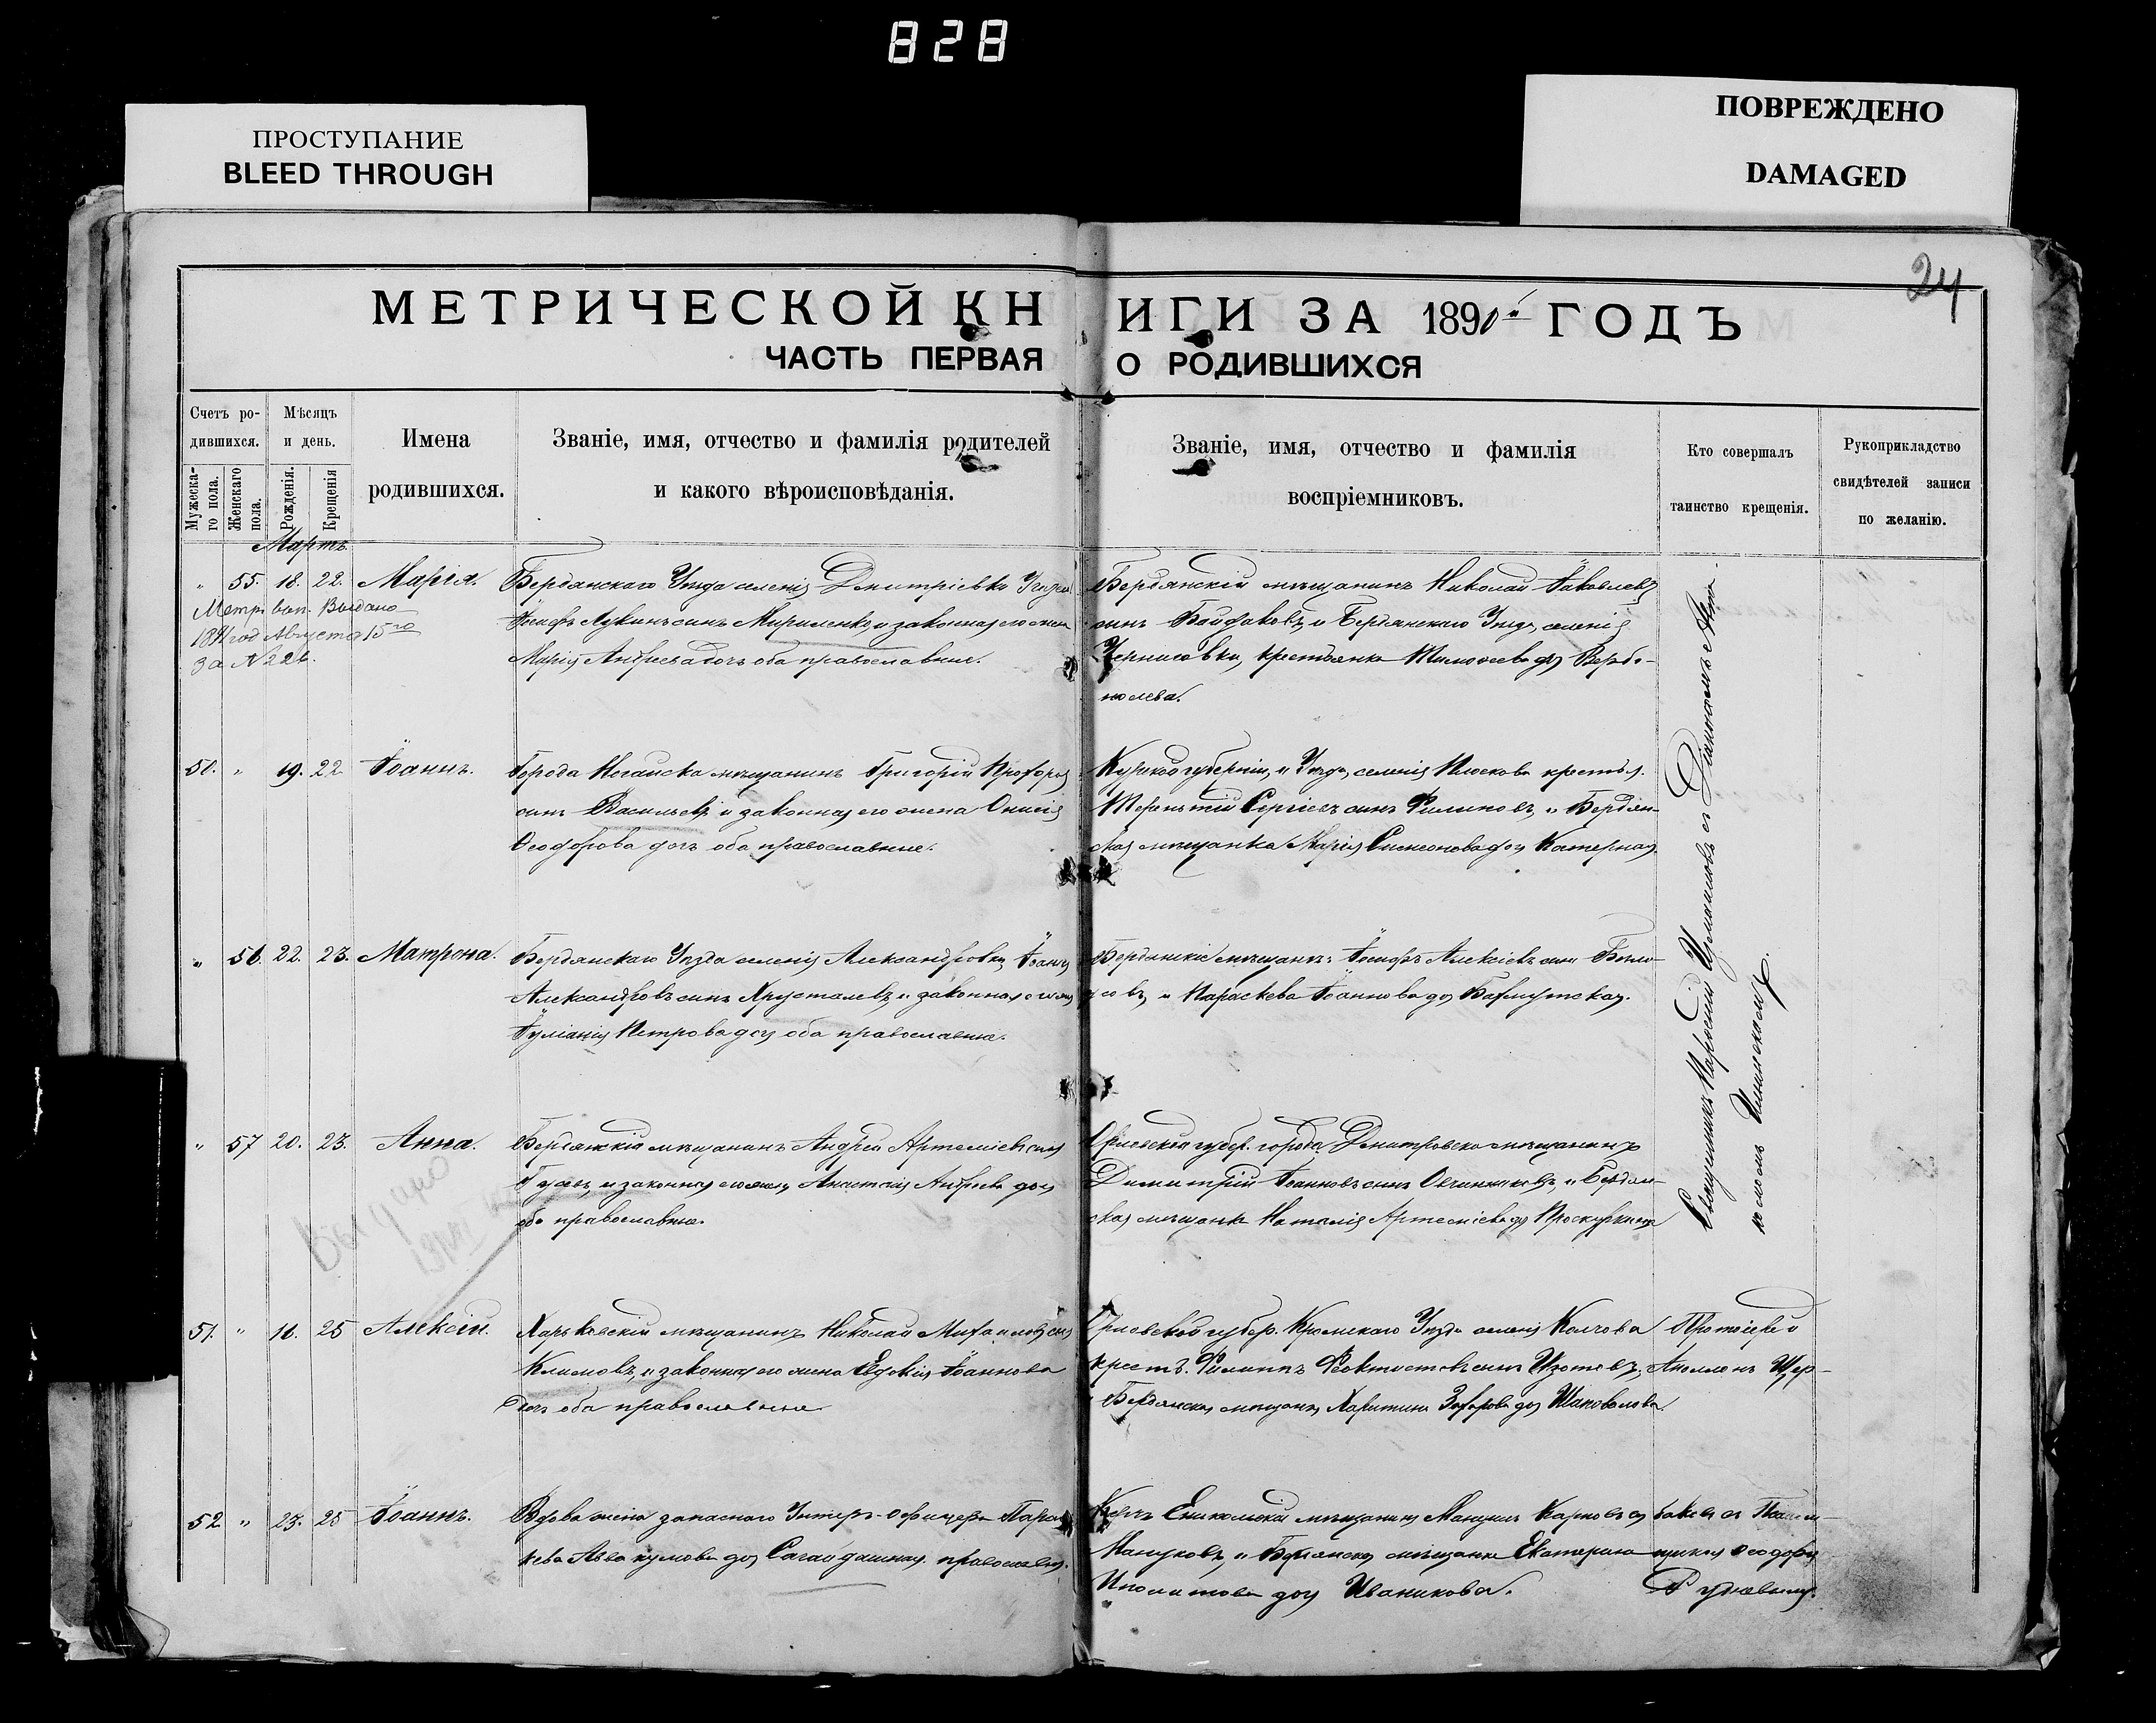 828
ПРОСТУПАНИЕ
BLEED THROUGH
ПОВРЕЖДЕНО
DAMAGED
24
МЕТРИЧЕСКОЙ КНИГИ ЗА 1890й ГОДЪ
ЧАСТЬ ПЕРВАЯ О РОДИВШИХСЯ
Счетъ ро-
дившихся.
Мужеска-
го пола.
Женскаго
пола.
Мѣсяцъ
и день.
Рожденія.
Крещенія
Имена
родившихся.
Званіе, имя, отчество и фамилія родителей
и какого вѣроисповѣданія.
Званіе, имя, отчество и фамилія
воспріемниковъ.
Кто совершалъ
таинство крещенія.
Рукоприкладство
свидѣтелей записи
по желанію.
Мартъ
" 55. 18. 22. Марія.
Метр. вып. Выдано
Августа 15го
за № 226.
Бердянскаго Уѣзда селенія Дмитріевки
Іосифъ Лукинъ сынъ Мириленко, и законная его жена
Марія Андреева дочь оба православные.
Бердянскій мѣщанинъ Николай Іаковлевъ
сынъ Бойдаковъ, и Бердянскаго Уѣзда, селенія
Черниговки, крестьянка Тимоѳеева дочь Вербо-
50. " 19. 22. Іоаннъ.
Города Ногайска мѣщанинъ Григорій Прохоровъ
сынъ Васильевъ и законная его жена Онисія
Ѳеодорова дочь оба православные.
Курской губерніи, и Уѣзда, селенія Плоскова крестья.
Терентій Сергіевъ сынъ Филиповъ, и Бердян-
ская мѣщанка Марія Симеонова дочь Катерная.
" 56. 22. 23. Матрона.
Бердянскаго Уѣзда селенія Александровки, Іоаннъ
Александровъ сынъ Хрусталевъ, и законная его жена
Іуліанія Петрова дочь оба православные.
Бердянскіе мѣщане: Іосифъ Алексіевъ сынъ Бѣло-
усовъ, и Параскева Іоаннова дочь Бахмутская.
" 57 20. 23. Анна.
Выдано
Бердянскій мѣщанинъ Андрей Артеміевъ сынъ
Гусевъ, и законная его жена Анастасія Андреева дочь
оба православные.
Орловской губер. города Дмитровска мѣщанинъ
Димитрій Іоанновъ сынъ Овчинниковъ, и Бердян-
ская мѣщанка Наталія Артеміева дочь Проскурнина
Священникъ Парѳеній Измаиловъ съ Діакономъ
51. " 16. 25 Алексій.
Харьковскій мѣщанинъ Николай Михаиловъ сынъ
Климовъ, и законная его жена Евдокія Іоаннова
дочь оба православные.
Орловской губер. Кромскаго Уѣзда селенія Колчова
крест. Филиппъ Ѳеоктистовъ сынъ Изотовъ, и
Бердянская мѣщанка Харитина Захарова дочь Шаповалова.
Протоіерей
Аполлонъ Щер-
52. " 23. 25 Іоаннъ.
Вдова жена запаснаго Унтеръ-офицера Парас-
кева Аввакумова дочь Сагайдашная православн.
Керчь Еникольскій мѣщанинъ Мануилъ Карповъ сынъ
Мануковъ, и Бердянская мѣщанка Екатерина
Иполитова дочь Иваникова.
баковъ съ Псалом-
щикомъ Ѳеодоромъ
Рудневымъ.